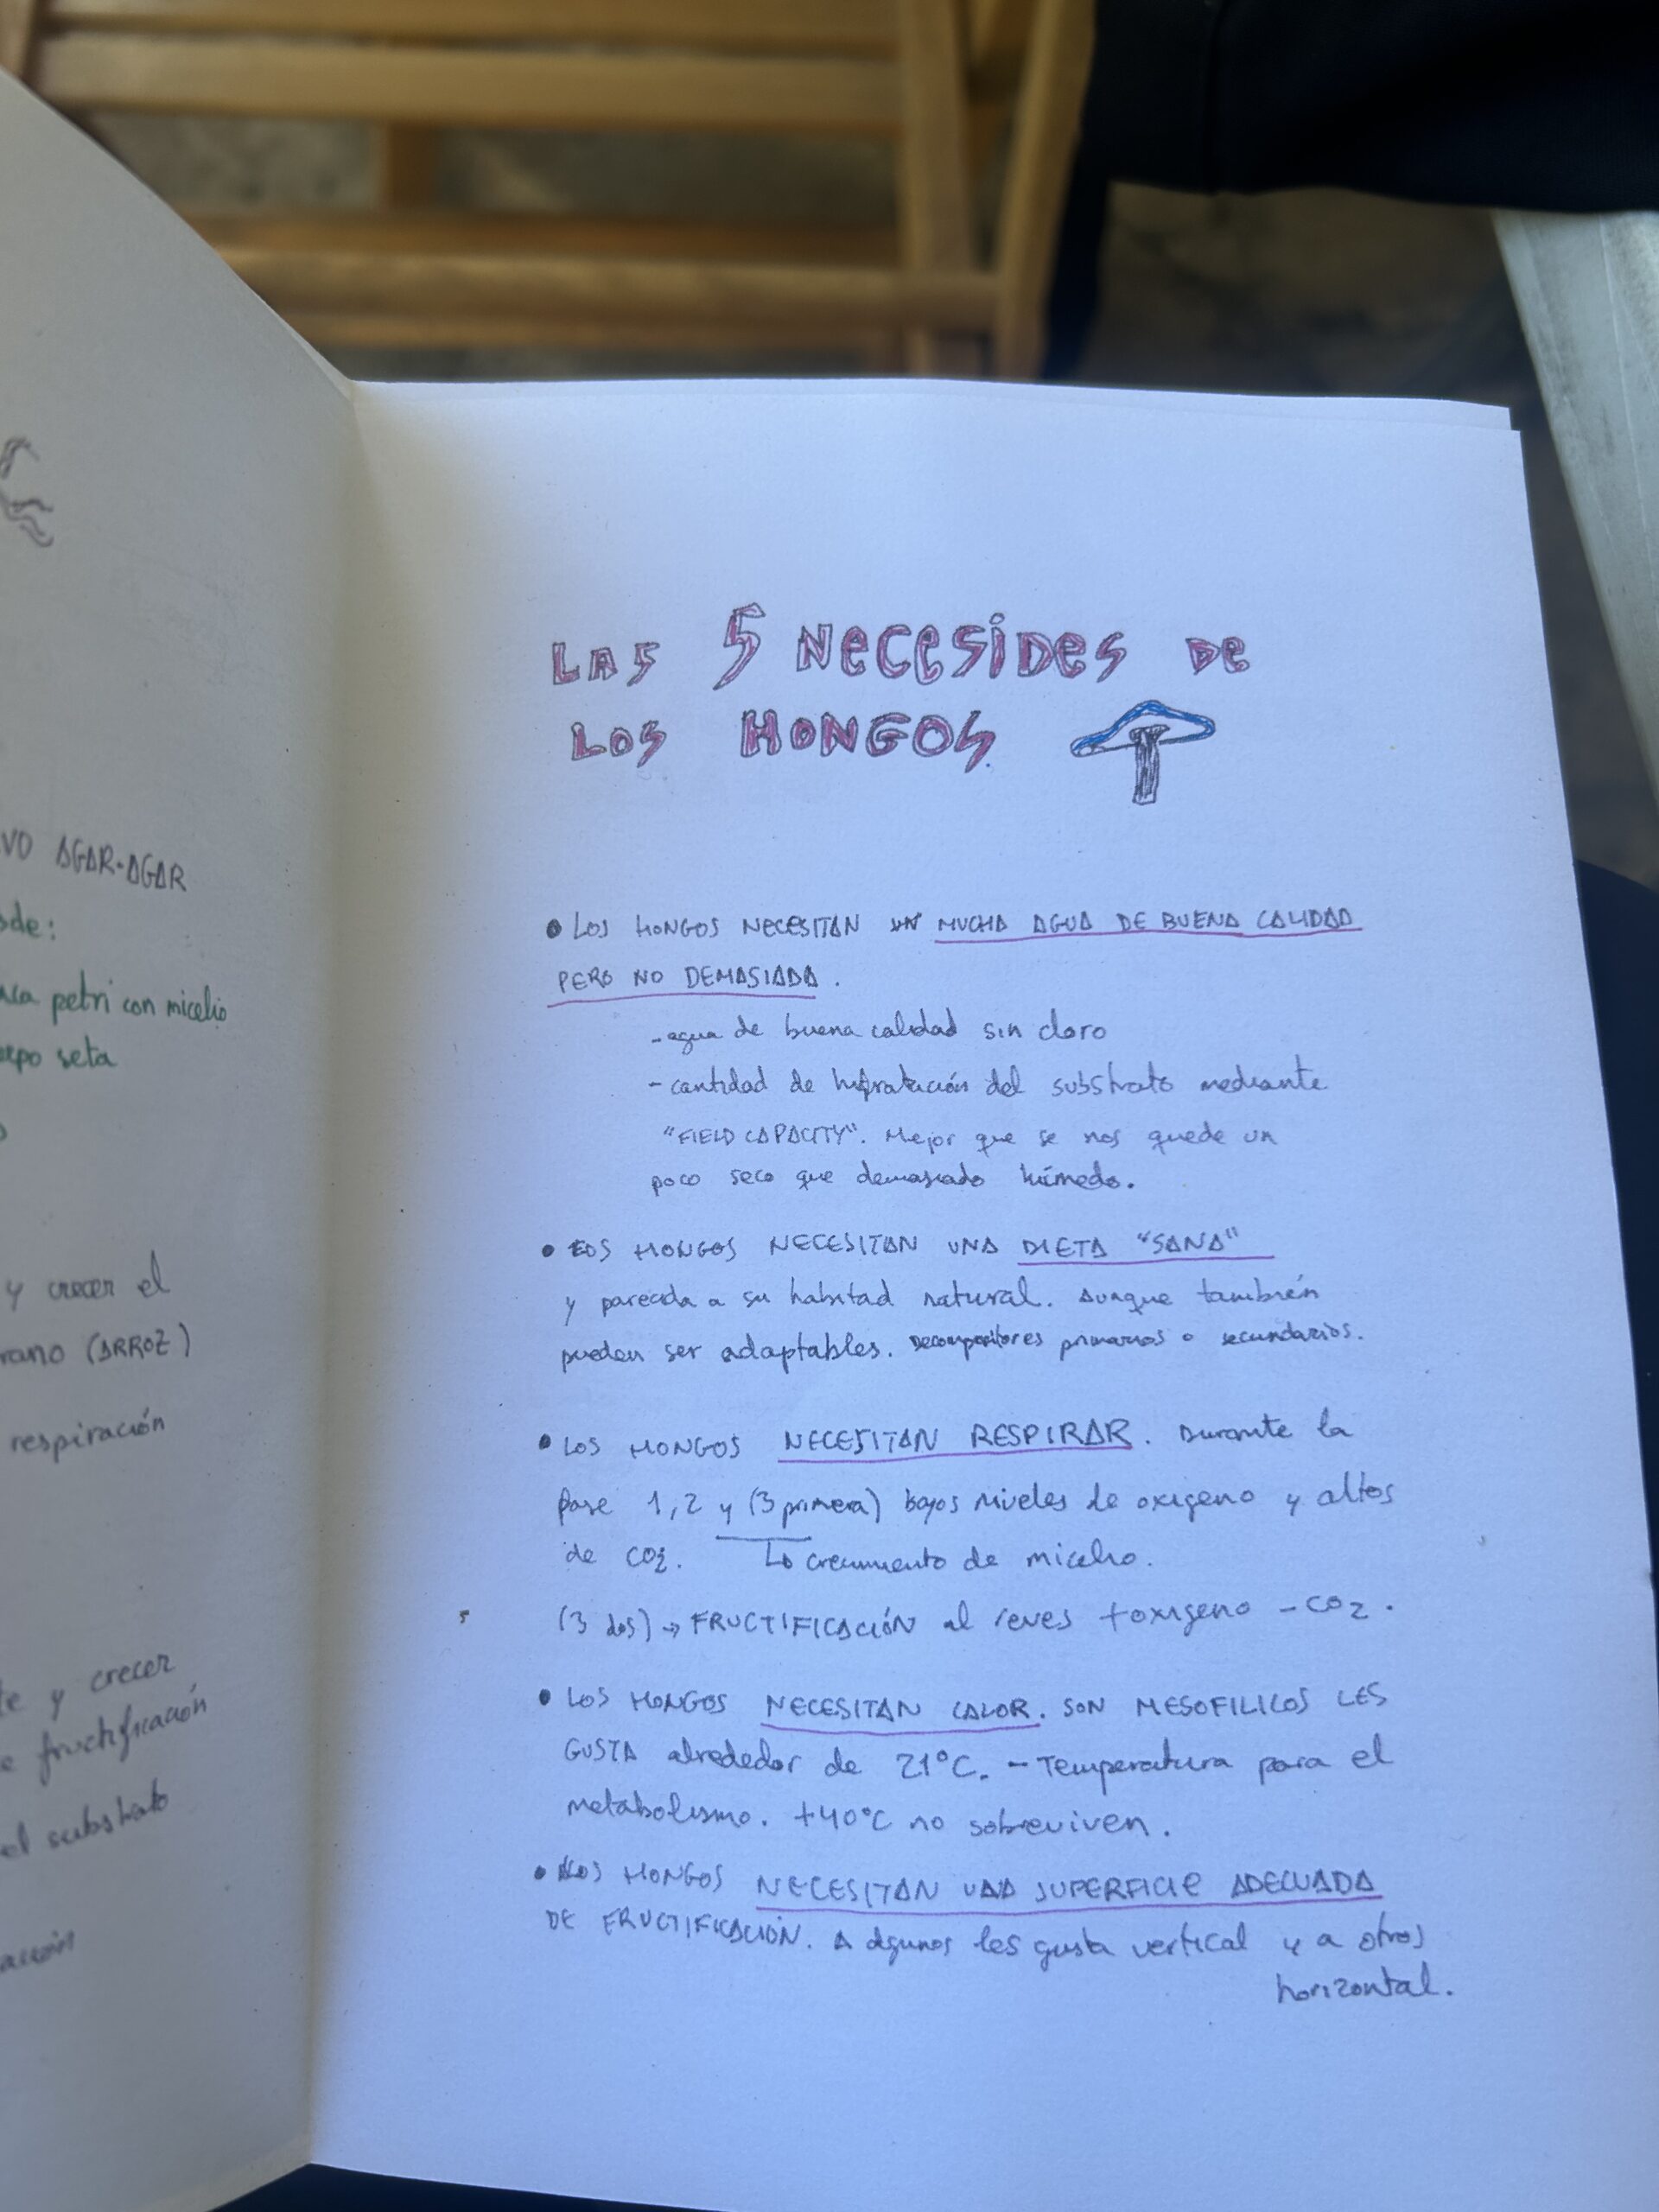 VO AGAR-AGAR
petri con micelio
seta
y crecer el
(ARROZ)
respiración
y crecer
fructificación
el substrato
LAS 5 NECESIDES DE
LOS HONGOS
• LOS HONGOS NECESITAN MUCHA AGUA DE BUENA CALIDAD
PERO NO DEMASIADA.
- agua de buena calidad sin cloro
- cantidad de hidratación del substrato mediante
"FIELD CAPACITY". Mejor que se nos quede un
poco seco que demasiado húmedo.
• LOS HONGOS NECESITAN UNA DIETA "SANA"
y parecida a su habitad natural. Aunque también
pueden ser adaptables. Decompositores primarios o secundarios.
• LOS HONGOS NECESITAN RESPIRAR. Durante la
fase 1, 2 y (3 primera) bajos niveles de oxigeno y altos
de CO2. ↳ crecimiento de micelio.
(3 dos) → FRUCTIFICACIÓN al reves +oxigeno -CO2.
• LOS HONGOS NECESITAN CALOR. SON MESOFILICOS LES
GUSTA alrededor de 21°C. - Temperatura para el
metabolismo. +40°C no sobreviven.
• LOS HONGOS NECESITAN UNA SUPERFICIE ADECUADA
DE FRUCTIFICACIÓN. A algunos les gusta vertical y a otros
horizontal.